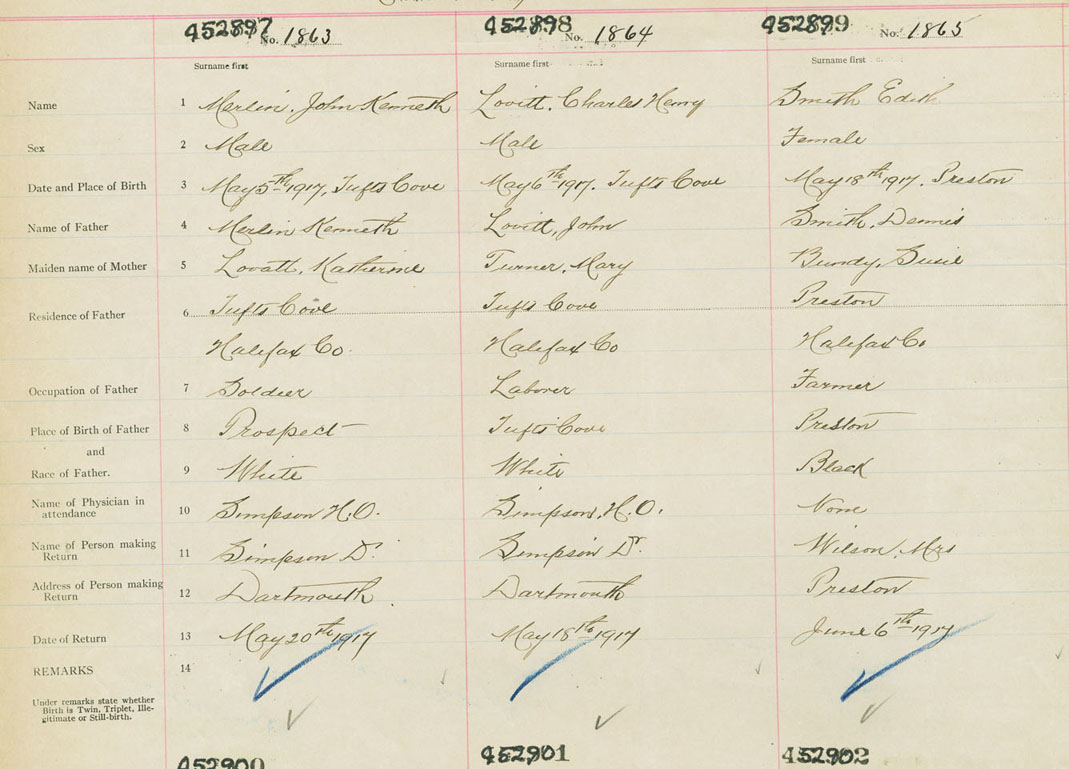 452897 No. 1863 452898 No. 1864 452899 No. 1865
Surname first Surname first Surname first
Name 1 Merlin, John Kenneth Lovitt, Charles Henry Smith Edith
Sex 2 Male Male Female
Date and Place of Birth 3 May 5th 1917, Tufts Cove May 6th 1917. Tufts Cove May 18th 1917. Preston
Name of Father 4 Merlin Kenneth Lovitt, John Smith, Dennis
Maiden name of Mother 5 Lovatt, Katherine Turner, Mary Bundy, Susie
Residence of Father 6 Tufts Cove Tufts Cove Preston
Halifax Co. Halifax Co Halifax Co
Occupation of Father 7 Soldier Laborer Farmer
Place of Birth of Father 8 Prospect Tufts Cove Preston
and
Race of Father. 9 White White Black
Name of Physician in
attendance 10 Simpson H.O. Simpson, H.O. None
Name of Person making
Return 11 Simpson Dr. Simpson Dr. Wilson, Mrs
Address of Person making
Return 12 Dartmouth Dartmouth Preston
Date of Return 13 May 20th 1917 May 18th 1917 June 6th 1917
REMARKS 14
Under remarks state whether
Birth is Twin, Triplet, Ille-
gitimate or Still-birth.
452900 452901 452902